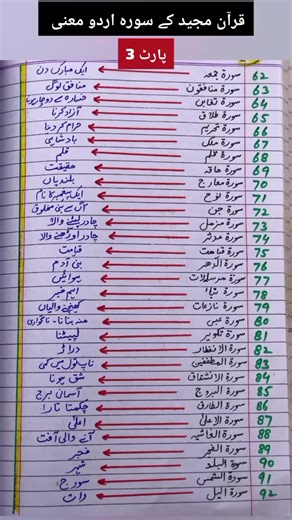 قرآن مجید کے سورہ اردو معنی
پارٹ 3
62 سورۃ جمعہ ایک مبارک دن
63 سورۃ منافقون منافق لوگ
64 سورۃ تغابن خسارہ سے دوچار ہونا
65 سورۃ طلاق آزاد کرنا
66 سورۃ تحریم حرام کر دینا
67 سورۃ ملک بادشاہی
68 سورۃ قلم قلم
69 سورۃ حاقہ حقیقت
70 سورۃ معارج بلندیاں
71 سورۃ نوح ایک پیغمبر کا نام
72 سورۃ جن آگ سے بنی مخلوق
73 سورۃ مزمل چادر لپیٹنے والا
74 سورۃ مدثر چادر اوڑھنے والا
75 سورۃ قیامت قیامت
76 سورۃ الدھر بنی آدم
77 سورۃ مرسلات ہوائیں
78 سورۃ نباء اہم خبر
79 سورۃ نازعات کھینچنے والیاں
80 سورۃ عبس منہ بنانا - ناگواری
81 سورۃ تکویر لپیٹنا
82 سورۃ الانفطار دراڑ
83 سورۃ المطففین ناپ تول میں کمی
84 سورۃ الانشقاق شق ہونا
85 سورۃ البروج آسمانی برج
86 سورۃ الطارق چمکتا تارا
87 سورۃ الاعلیٰ اعلیٰ
88 سورۃ الغاشیہ آنے والی آفت
89 سورۃ الفجر فجر
90 سورۃ البلد شہر
91 سورۃ الشمس سورج
92 سورۃ الیل رات